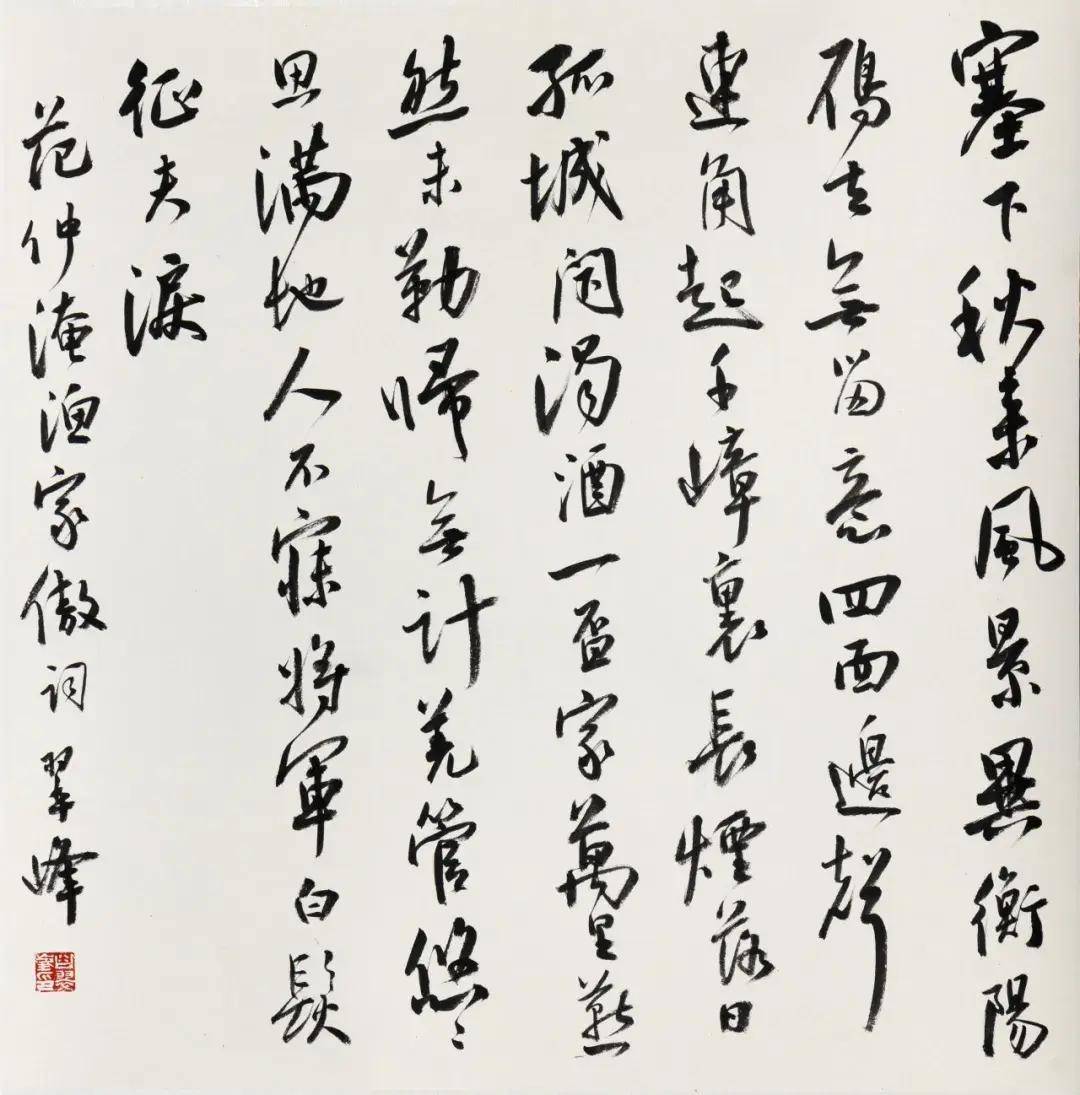 塞下秋来風景異衡陽
鴈去無留意四面邊聲
連角起千嶂裏長煙落日
孤城閉濁酒一盃家萬里燕
然未勒歸無計羌管悠〻
思滿地人不寐將軍白髮
征夫淚
范仲淹漁家傲詞 翠峰